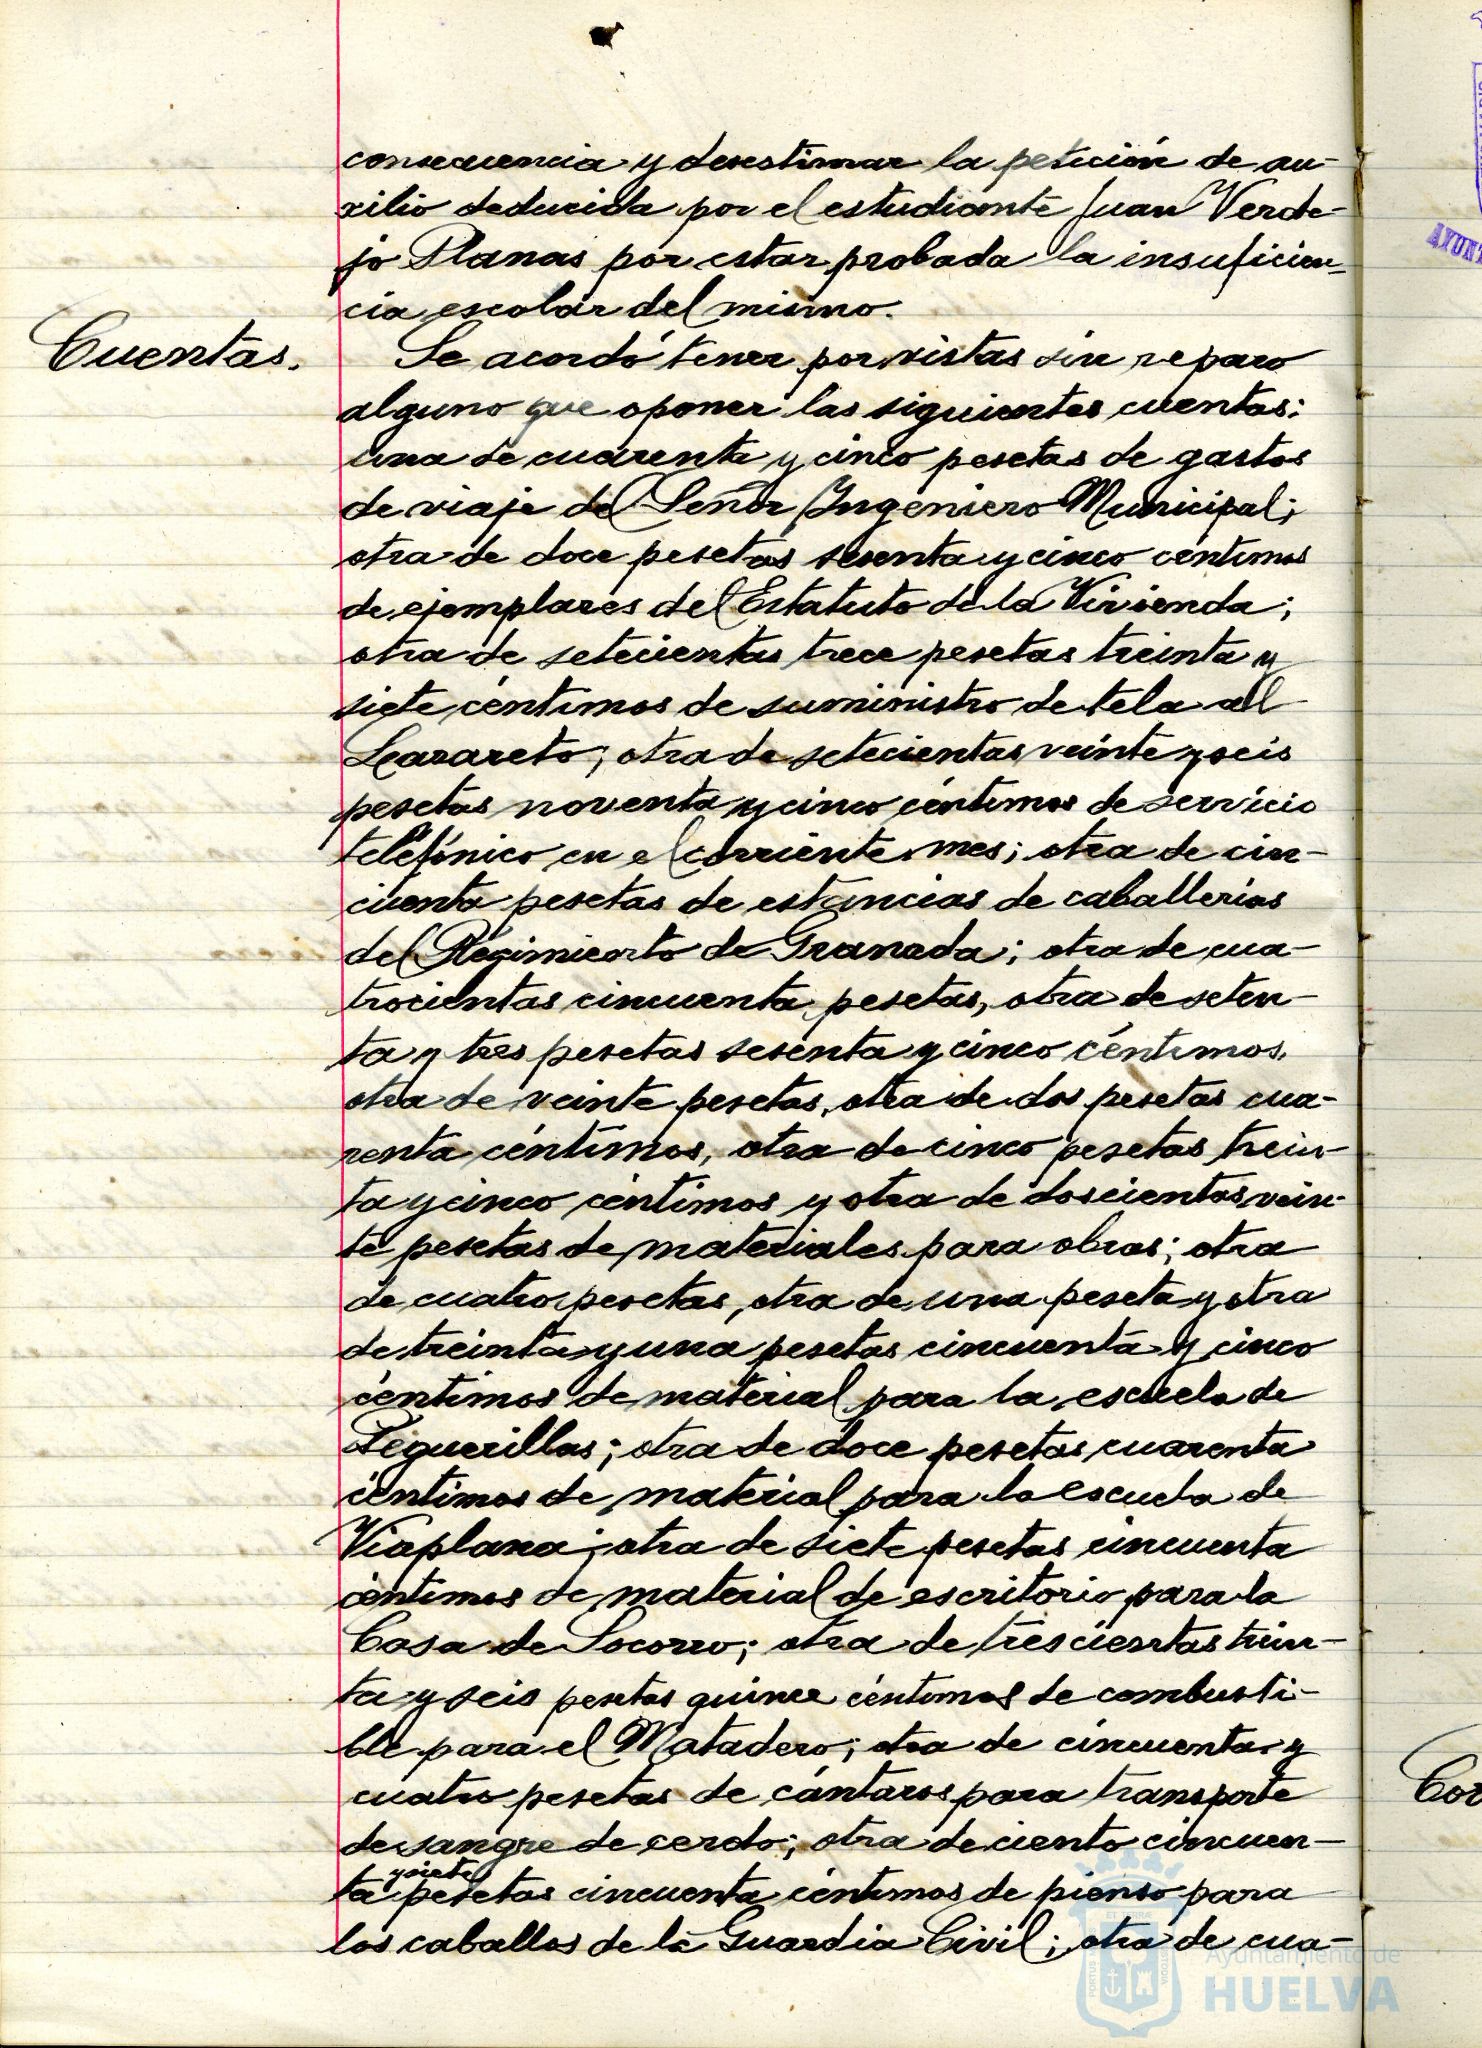 consecuencia y desestimar la petición de au-
xilio deducida por el estudiante Juan Verde-
jo Planas por estar probada la insuficien-
cia escolar del mismo.
Cuentas.
Se acordó tener por vistas sin reparo
alguno que oponer las siguientes cuentas:
una de cuarenta y cinco pesetas de gastos
de viaje del Señor Ingeniero Municipal;
otra de doce pesetas sesenta y cinco céntimos
de ejemplares del Estatuto de la Vivienda;
otra de setecientas trece pesetas treinta y
siete céntimos de suministro de tela al
Lazareto; otra de setecientas veinte y seis
pesetas noventa y cinco céntimos de servicio
telefónico en el corriente mes; otra de cin-
cuenta pesetas de estancias de caballerias
del Regimiento de Granada; otra de cua-
trocientas cincuenta pesetas, otra de seten-
ta y tres pesetas sesenta y cinco céntimos,
otra de veinte pesetas, otra de dos pesetas cua-
renta céntimos, otra de cinco pesetas trein-
ta y cinco céntimos y otra de doscientas vein-
te pesetas de materiales para obras; otra
de cuatro pesetas, otra de una peseta y otra
de treinta y una pesetas cincuenta y cinco
céntimos de material para la escuela de
Peguerillas; otra de doce pesetas cuarenta
céntimos de material para la escuela de
Viaplana; otra de siete pesetas cincuenta
céntimos de material de escritorio para la
Casa de Socorro; otra de trescientas trein-
ta y seis pesetas quince céntimos de combusti-
ble para el Matadero; otra de cincuenta y
cuatro pesetas de cántaros para transporte
de sangre de cerdo; otra de ciento cincuen-
y siete
ta pesetas cincuenta céntimos de pienso para
los caballos de la Guardia Civil; otra de cua-
Ayuntamiento de
HUELVA
AYUNT
Cor